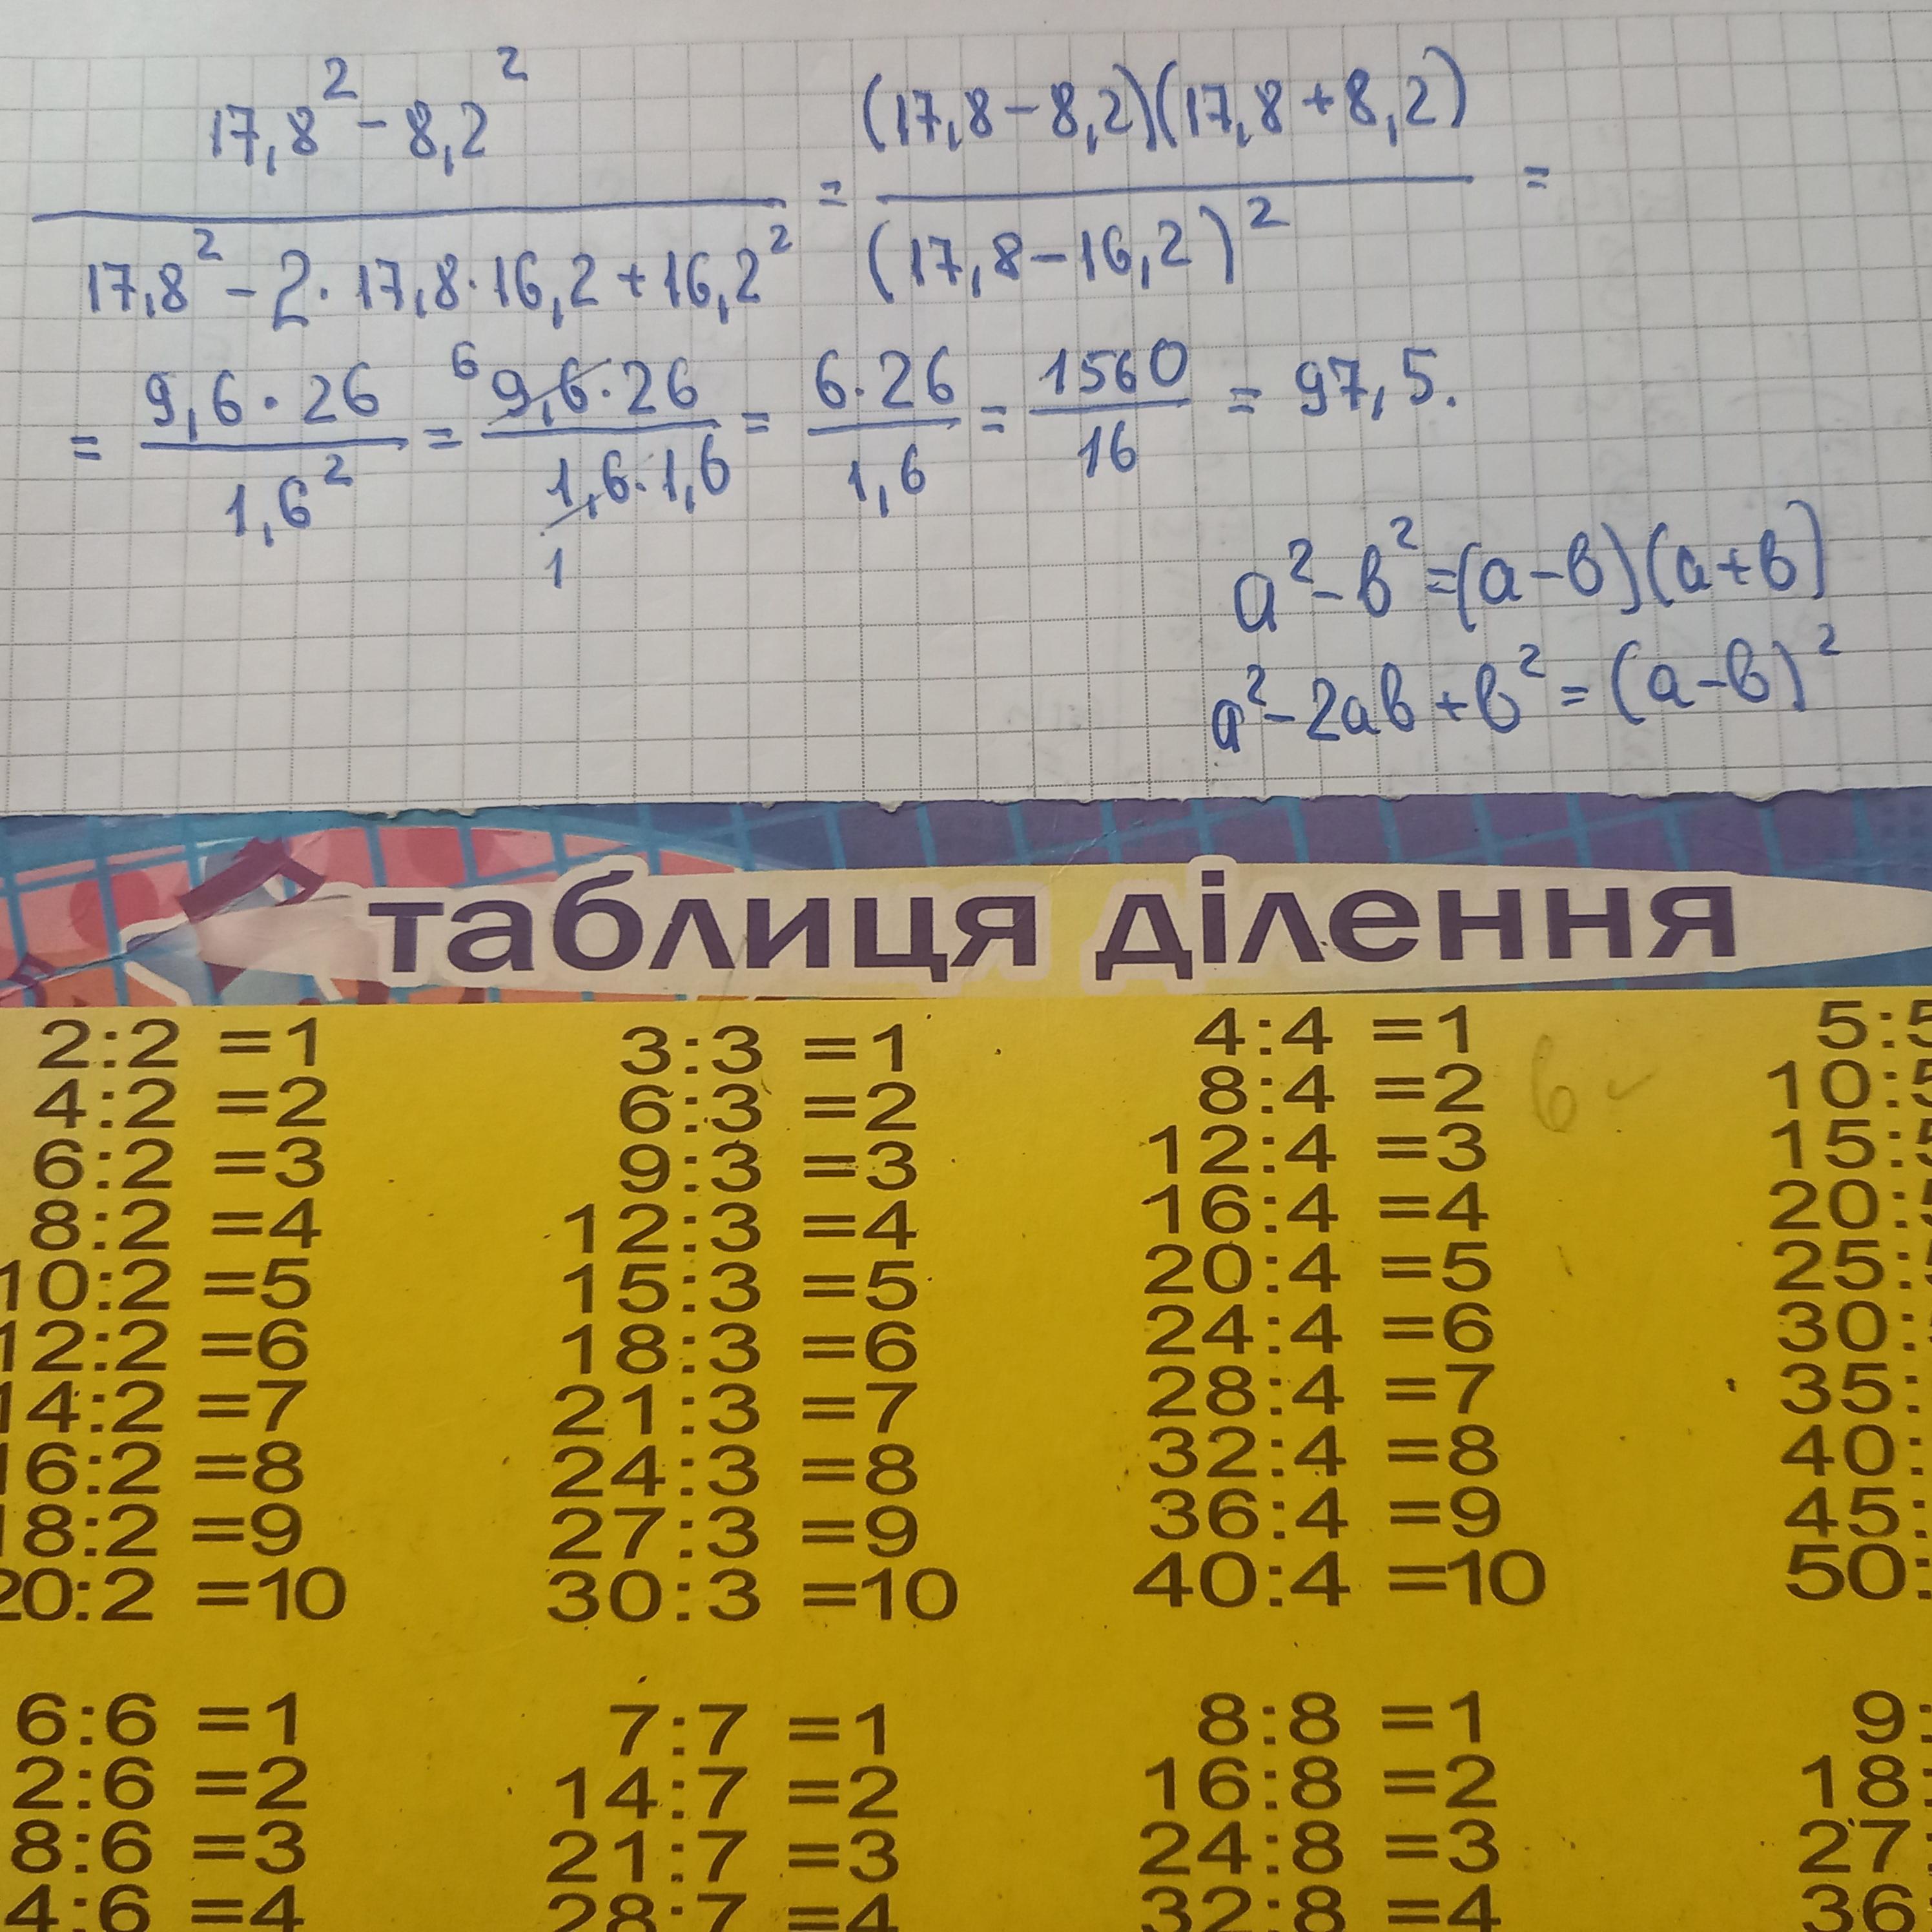 17,8² - 8,2² / 17,8² - 2 · 17,8 · 16,2 + 16,2² = (17,8 - 8,2)(17,8 + 8,2) / (17,8 - 16,2)² =
= 9,6 · 26 / 1,6² = 6 9,6 · 26 / 1,6 · 1,6 1 = 6 · 26 / 1,6 = 1560 / 16 = 97,5.
a² - b² = (a - b)(a + b)
a² - 2ab + b² = (a - b)²
таблиця ділення
2:2 =1 3:3 =1 4:4 =1 5:5
4:2 =2 6:3 =2 8:4 =2 6 10:5
6:2 =3 9:3 =3 12:4 =3 15:5
8:2 =4 12:3 =4 16:4 =4 20:5
10:2 =5 15:3 =5 20:4 =5 25:5
12:2 =6 18:3 =6 24:4 =6 30:
14:2 =7 21:3 =7 28:4 =7 35:
16:2 =8 24:3 =8 32:4 =8 40:
18:2 =9 27:3 =9 36:4 =9 45:
20:2 =10 30:3 =10 40:4 =10 50:
6:6 =1 7:7 =1 8:8 =1 9:
2:6 =2 14:7 =2 16:8 =2 18:
8:6 =3 21:7 =3 24:8 =3 27:
4:6 =4 28:7 =4 32:8 =4 36: